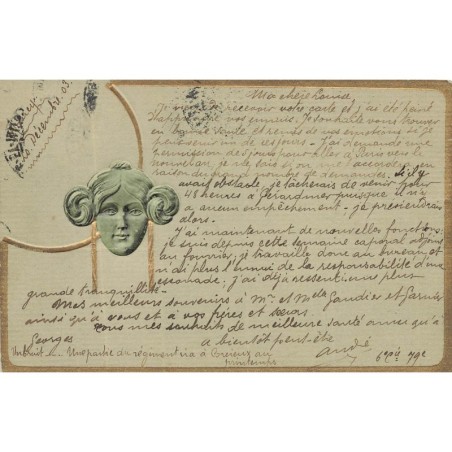 Décembre 03
Ma chère Louise
Je viens de recevoir votre carte et j'ai été peiné
d'apprendre vos ennuis. Je souhaite vous trouver
en bonne santé et remis de vos émotions si je
de jours. J'ai demandé une
permission de jours pour aller à Paris vers le
nouvel an, je ne sais si on me l'accordera en
raison du grand nombre de demandes. S'il y
avait obstacle, je tâcherais de venir pour
48 heures à Gérardmer puisque il n'y
a aucun empêchement - je préviendrai
alors.
J'ai maintenant de nouvelles fonctions,
je suis depuis cette semaine caporal adjoint
au fourrier, je travaille donc au bureau et
n'ai plus l'ennui de la responsabilité d'une
escouade; j'ai déjà ressenti une plus
grande tranquillité.
Mes meilleurs souvenirs à Mr et Melle Gaudier et Garnier
ainsi qu'à vous et à vos frères et sœurs
Tous mes souhaits de meilleure santé ainsi qu'à
Georges
à bientôt peut-être
André
Une partie du régiment ira à au
printemps